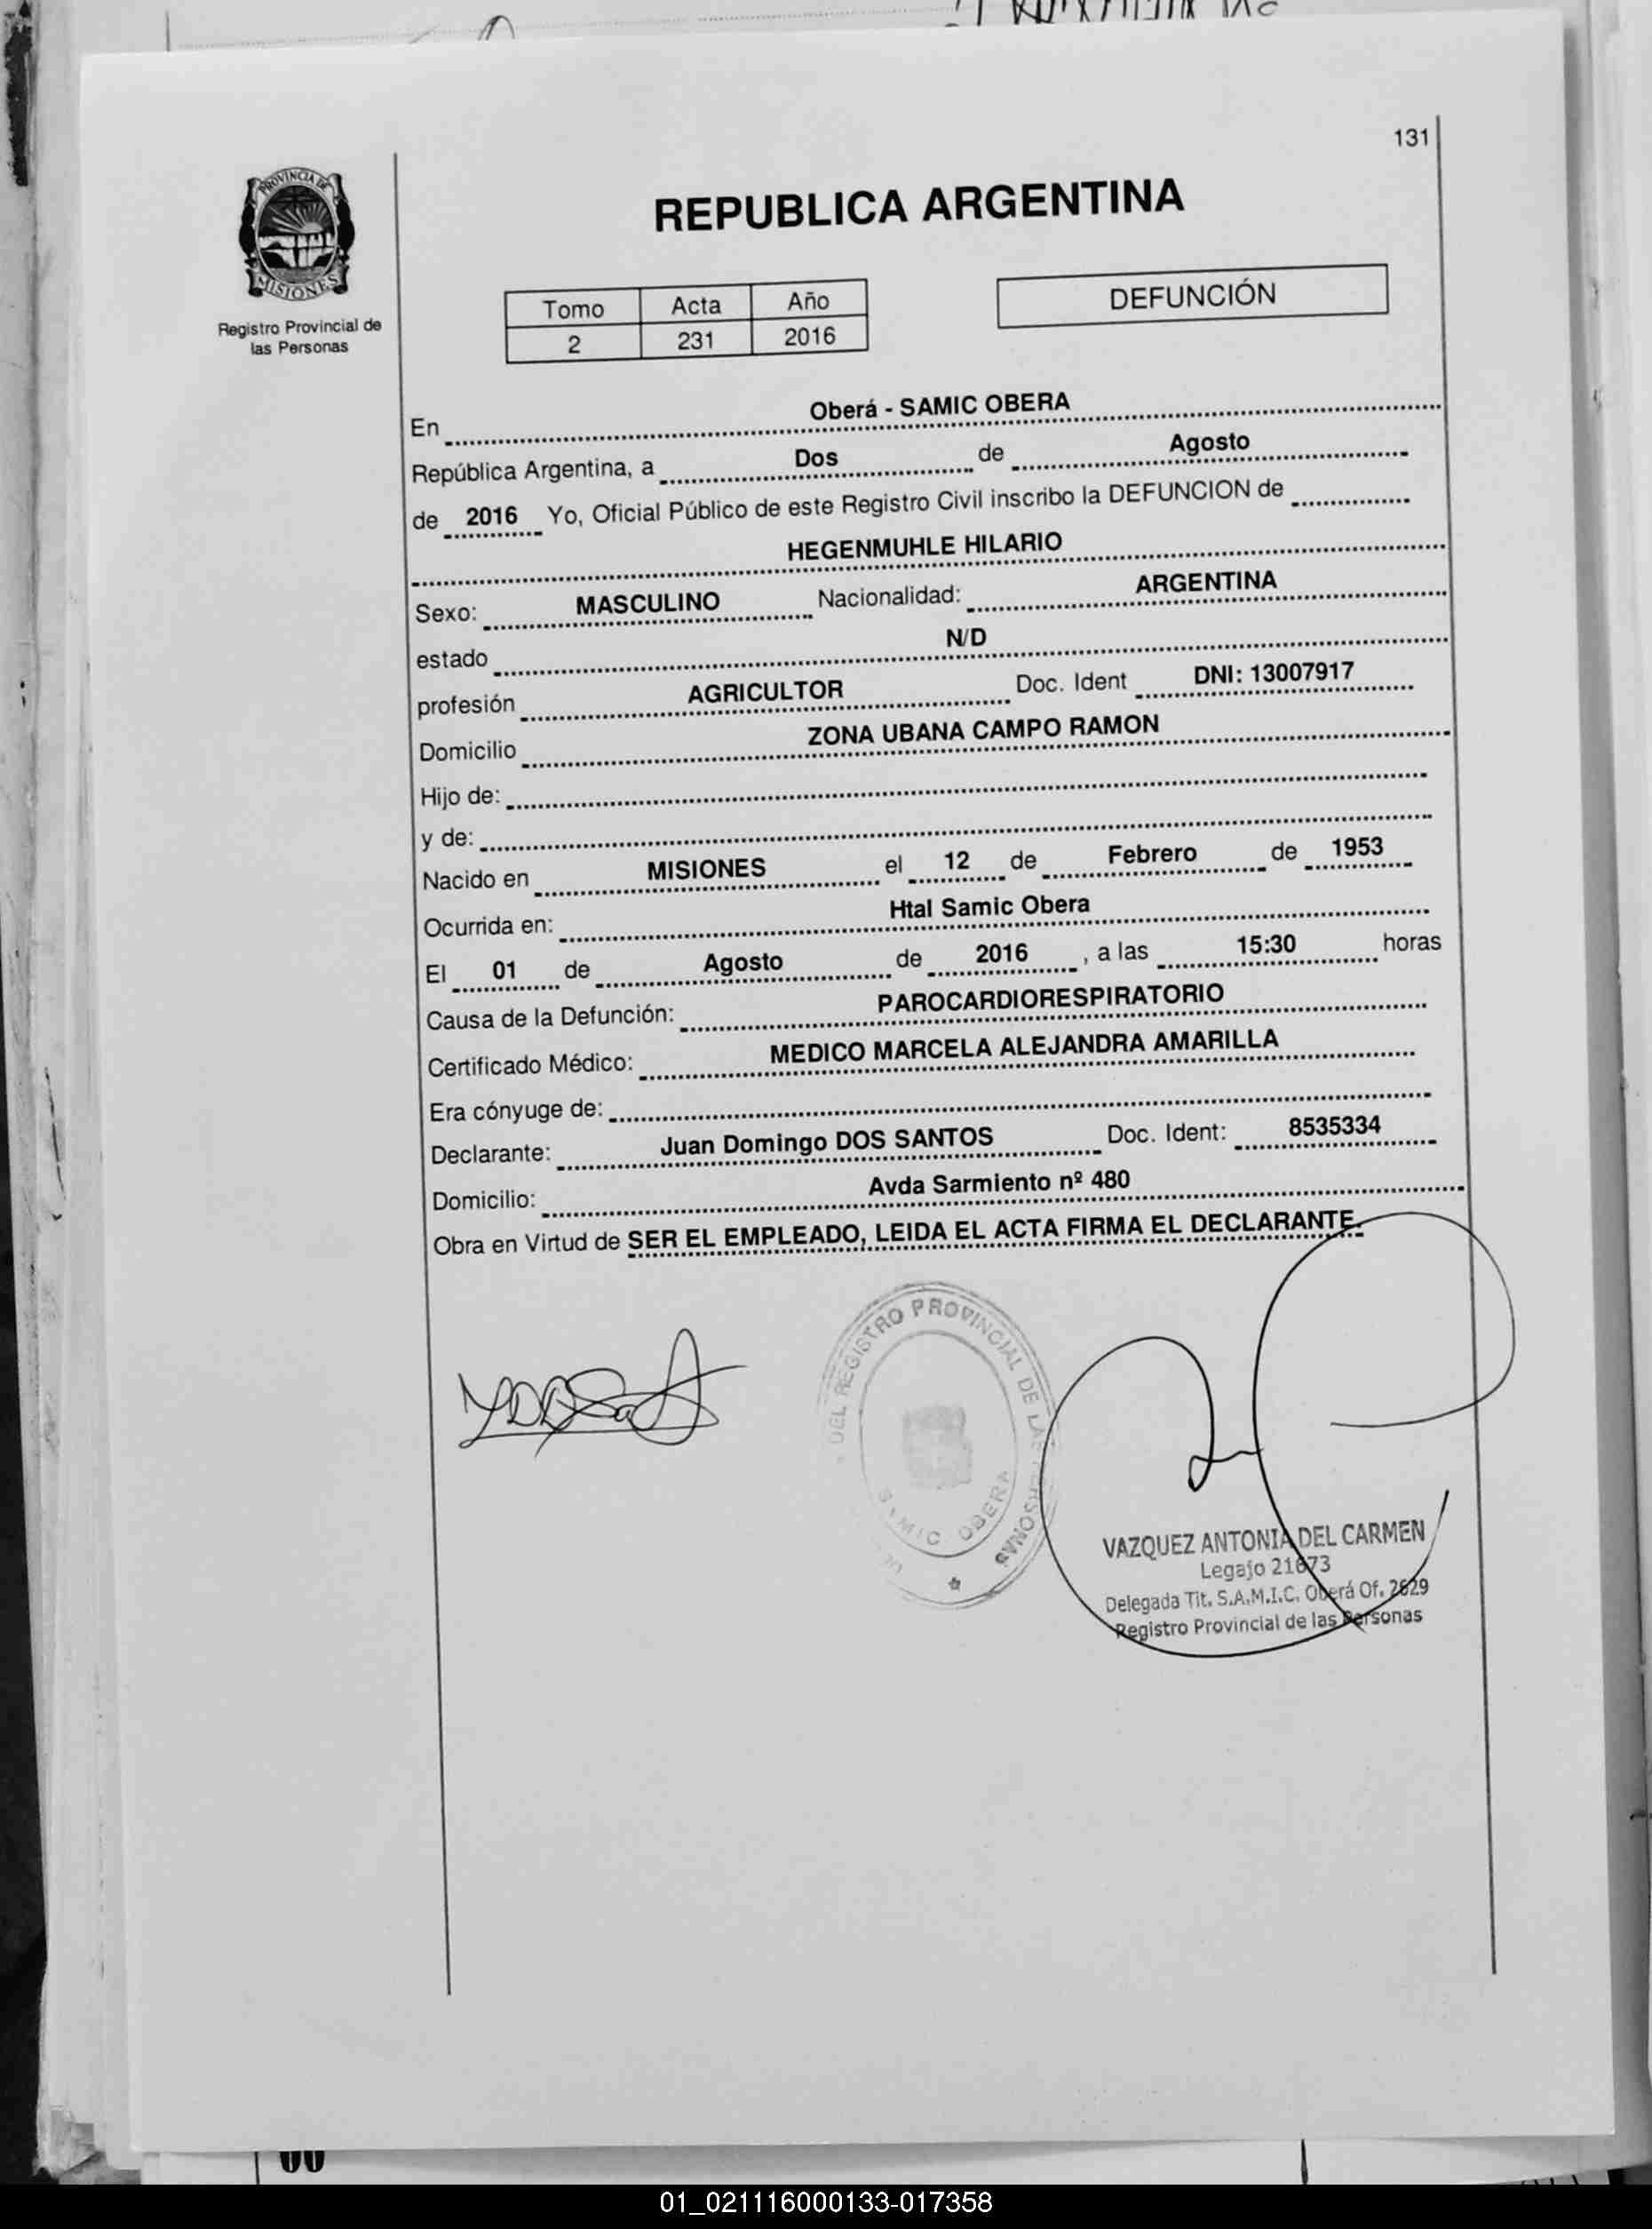 131
PROVINCIA DE
MISIONES
Registro Provincial de
las Personas
REPUBLICA ARGENTINA
Tomo Acta Año
2 231 2016
DEFUNCIÓN
En Oberá - SAMIC OBERA
República Argentina, a Dos de Agosto
de 2016 Yo, Oficial Público de este Registro Civil inscribo la DEFUNCION de
HEGENMUHLE HILARIO
Sexo: MASCULINO Nacionalidad: ARGENTINA
estado N/D
profesión AGRICULTOR Doc. Ident DNI: 13007917
Domicilio ZONA UBANA CAMPO RAMON
Hijo de:
y de:
Nacido en MISIONES el 12 de Febrero de 1953
Ocurrida en: Htal Samic Obera
El 01 de Agosto de 2016 , a las 15:30 horas
Causa de la Defunción: PAROCARDIORESPIRATORIO
Certificado Médico: MEDICO MARCELA ALEJANDRA AMARILLA
Era cónyuge de:
Declarante: Juan Domingo DOS SANTOS Doc. Ident: 8535334
Domicilio: Avda Sarmiento nº 480
Obra en Virtud de SER EL EMPLEADO, LEIDA EL ACTA FIRMA EL DECLARANTE.
DEL REGISTRO PROVINCIAL DE LAS PERSONAS
SAMIC OBERA
VAZQUEZ ANTONIA DEL CARMEN
Legajo 21673
Delegada Tit. S.A.M.I.C. Oberá Of. 2629
Registro Provincial de las Personas
01_021116000133-017358